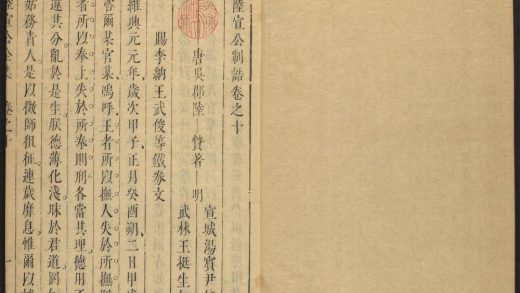 陸宣公制誥卷之十
唐吳郡陸贄著 明
宣城湯賓尹
武林王梃生
賜李納王武俊等鐵券文
維興元元年歲次甲子正月癸酉朔二日甲
咨爾某官某嗚呼王者所以撫人失於所撫
者所以奉上失於所奉則刑各當其理德用不
違其分亂於是生朕德薄化淺昧於君道罔
始務責人是以徵師徂征連歲靡息惟爾以
陸宣公全集 卷之十 一